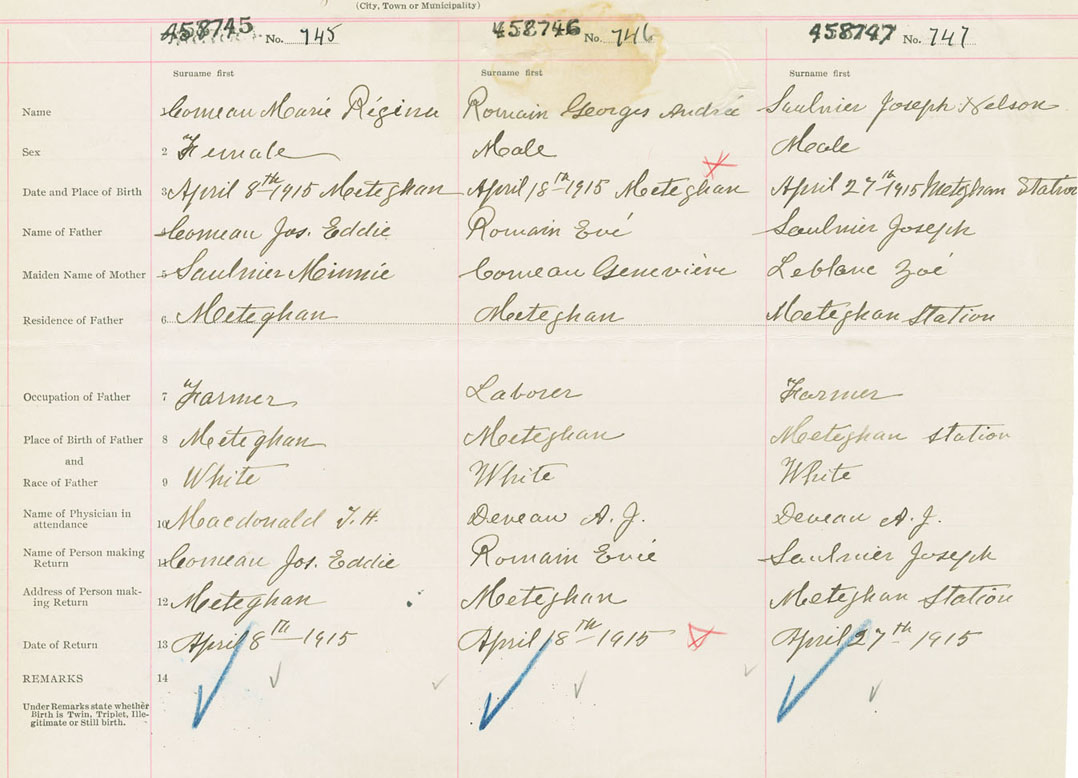 (City, Town or Municipality)
458745 No. 745 458746 No. 746 458747 No. 747
Surname first Surname first Surname first
Name 1 Comeau Marie Régina Romain Georges André Saulnier Joseph Nelson
Sex 2 Female Male Male
Date and Place of Birth 3 April 8th 1915 Meteghan April 18th 1915 Meteghan April 27th 1915 Meteghan Station
Name of Father 4 Comeau Jos. Eddie Romain Evé Saulnier Joseph
Maiden Name of Mother 5 Saulnier Minnie Comeau Geneviève Leblanc Zoé
Residence of Father 6 Meteghan Meteghan Meteghan Station
Occupation of Father 7 Farmer Laborer Farmer
Place of Birth of Father 8 Meteghan Meteghan Meteghan Station
and
Race of Father 9 White White White
Name of Physician in
attendance 10 Macdonald T. H. Deveau A. J. Deveau A. J.
Name of Person making
Return 11 Comeau Jos. Eddie Romain Evié Saulnier Joseph
Address of Person mak-
ing Return 12 Meteghan Meteghan Meteghan Station
Date of Return 13 April 8th 1915 April 18th 1915 April 27th 1915
REMARKS 14
Under Remarks state whether
Birth is Twin, Triplet, Ille-
gitimate or Still birth.